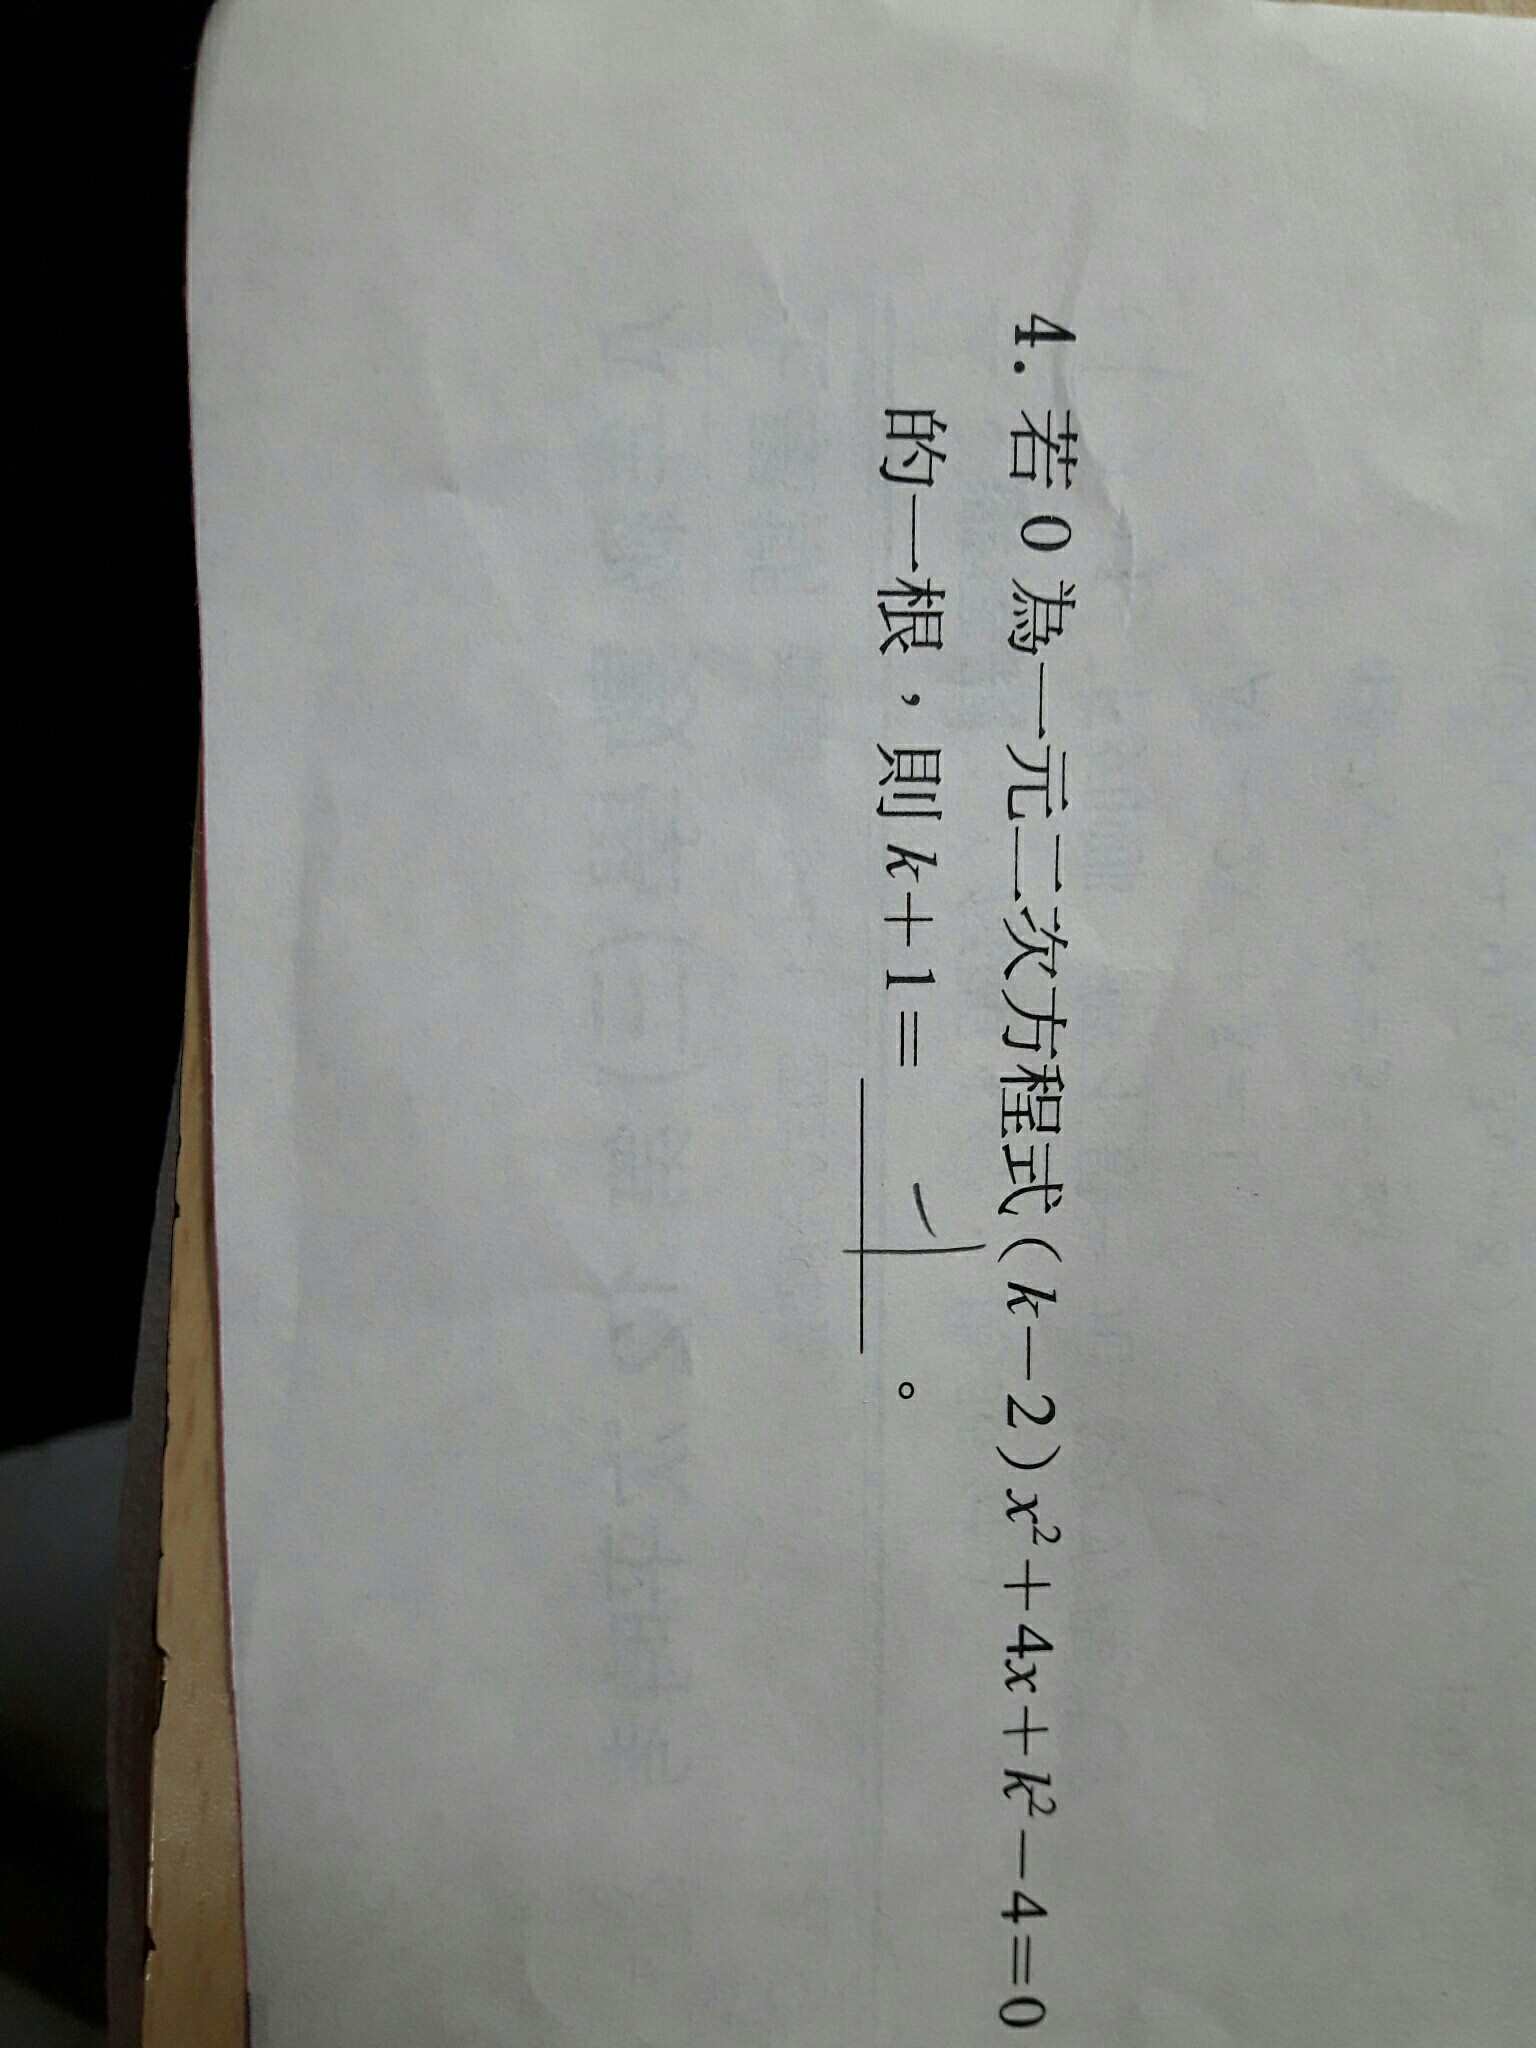 4. 若 0 為一元二次方程式(k－2)x²＋4x＋k²－4＝0
的一根，則k＋1＝ -1 。